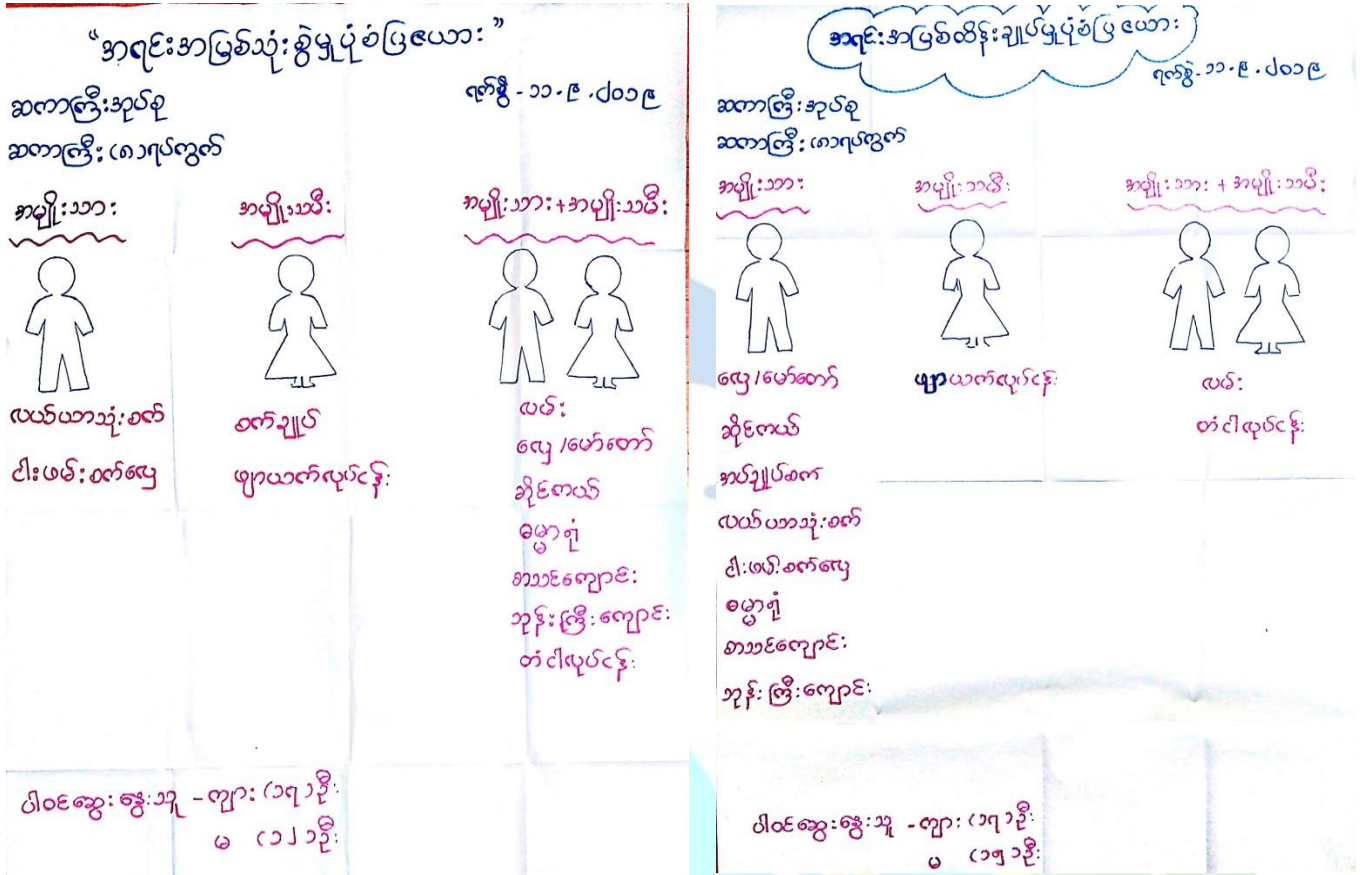 “အရင်းအမြစ်သုံးစွဲမှုပုံစံပြဇယား”
ရက်စွဲ - ၁၁.၉.၂၀၁၉
ဆကာကြီးအုပ်စု
ဆကာကြီး (၈)ရပ်ကွက်
အမျိုးသား
အမျိုးသမီး
အမျိုးသား+အမျိုးသမီး
လယ်ယာသုံးစက်
ငါးဖမ်းစက်လှေ
စက်ချုပ်
ဖျာယက်လုပ်ငန်း
လမ်း
လှေ/မော်တော်
ဆိုင်ကယ်
ဓမ္မာရုံ
စာသင်ကျောင်း
ဘုန်းကြီးကျောင်း
တံငါလုပ်ငန်း
ပါဝင်ဆွေးနွေးသူ - ကျား (၁၇)ဦး
မ (၁၂)ဦး
အရင်းအမြစ်ထိန်းချုပ်မှုပုံစံပြဇယား
ရက်စွဲ - ၁၁.၉.၂၀၁၉
ဆကာကြီးအုပ်စု
ဆကာကြီး (၈)ရပ်ကွက်
အမျိုးသား
အမျိုးသမီး
အမျိုးသား + အမျိုးသမီး
လှေ/မော်တော်
ဆိုင်ကယ်
အပ်ချုပ်စက်
လယ်ယာသုံးစက်
ငါးဖမ်းစက်လှေ
ဓမ္မာရုံ
စာသင်ကျောင်း
ဘုန်းကြီးကျောင်း
ဖျာယက်လုပ်ငန်း
လမ်း
တံငါလုပ်ငန်း
ပါဝင်ဆွေးနွေးသူ - ကျား (၁၇)ဦး
မ (၁၅)ဦး